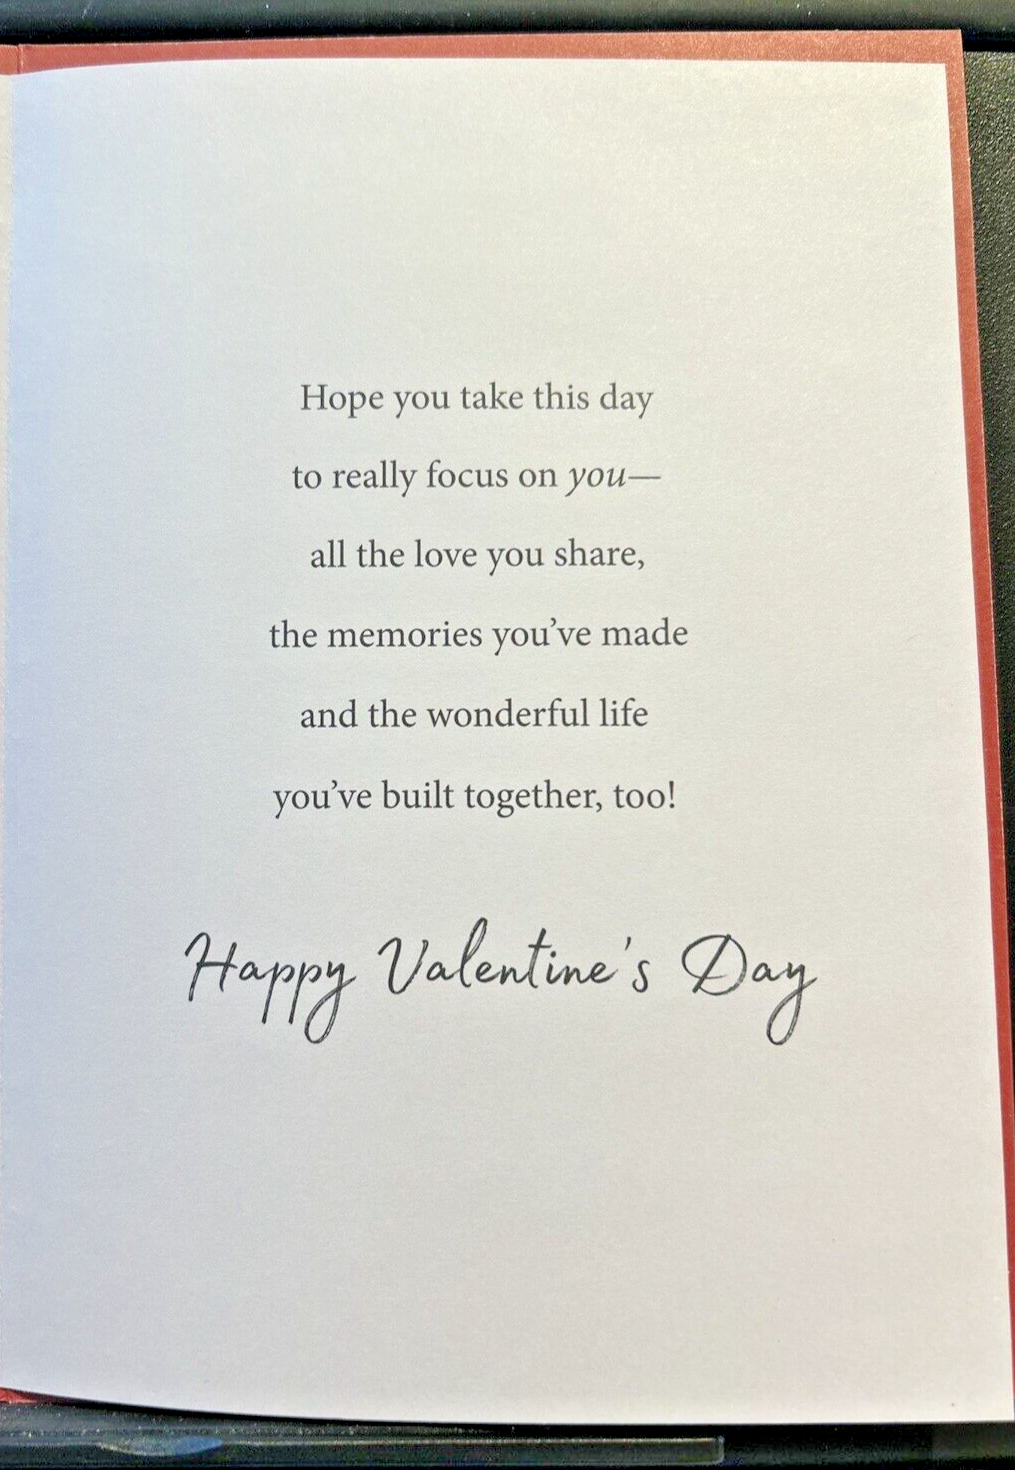 Hope you take this day
to really focus on you—
all the love you share,
the memories you’ve made
and the wonderful life
you’ve built together, too!
Happy Valentine's Day